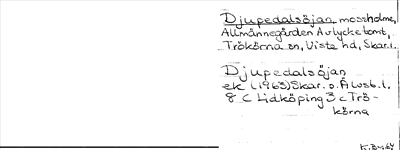 Djupedalsöjan mossholme,
Allmännegården Avlycketomt,
Trökörna sn, Viste hd, Skar.l.
Djupedalsöjan
ek (1963) Skar. o. Älvsb. l.
8 C Lidköping 3 c Trö-
körna